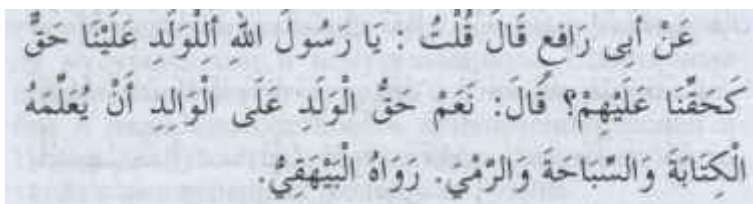 عَنْ أَبِى رَافِعٍ قَالَ قُلْتُ : يَا رَسُولَ اللهِ أَلِلْوَلَدِ عَلَيْنَا حَقٌّ
كَحَقِّنَا عَلَيْهِمْ؟ قَالَ: نَعَمْ حَقُّ الْوَلَدِ عَلَى الْوَالِدِ أَنْ يُعَلِّمَهُ
الْكِتَابَةَ وَالسِّبَاحَةَ وَالرَّمْيَ. رَوَاهُ الْبَيْهَقِيُّ.